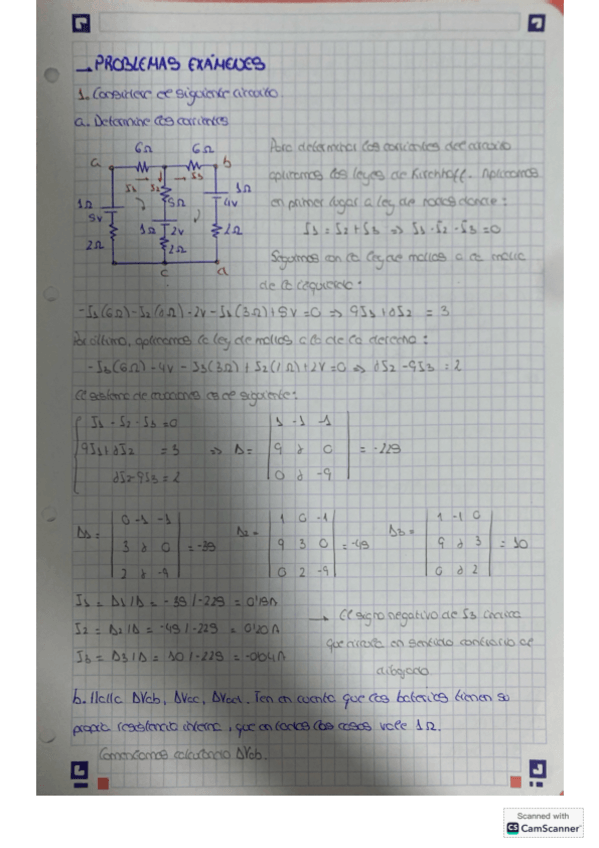 → PROBLEMAS EXÁMENES
1. Considere el siguiente circuito
a. Determine las corrientes
6Ω 6Ω
a b
I1 I2 I3
1Ω 5V 2Ω
5Ω
1Ω 2V 2Ω
1Ω 4V 2Ω
c d
Para determinar las corrientes del circuito
aplicamos las leyes de Kirchhoff. Aplicamos
en primer lugar la ley de nodos donde:
I1 = I2 + I3 => I1 - I2 - I3 = 0
Seguimos con la ley de mallas a la malla
de la izquierda:
-I1(6Ω) - I2(8Ω) - 2V - I1(3Ω) + 5V = 0 => 9I1 + 8I2 = 3
Por último, aplicamos la ley de mallas a la de la derecha:
-I3(6Ω) - 4V - I3(3Ω) + I2( Ω) + 2V = 0 => 8I2 - 9I3 = 2
El sistema de ecuaciones es el siguiente:
I1 - I2 - I3 = 0
9I1 + 8I2 = 3
8I2 - 9I3 = 2
=> Δ =
1 -1 -1
9 8 0
0 8 -9
= -229
Δ1 =
0 -1 -1
3 8 0
2 8 -9
= -39
Δ2 =
1 0 -1
9 3 0
0 2 -9
= -49
Δ3 =
1 -1 0
9 8 3
0 8 2
= 10
I1 = Δ1/Δ = -39/-229 = 0'19A
I2 = Δ2/Δ = -49/-229 = 0'20A
I3 = Δ3/Δ = 10/-229 = -0'04A
→ El signo negativo de I3 indica
que circula en sentido contrario al
dibujado
b. Halla ΔVab, ΔVac, ΔVad. Ten en cuenta que las baterías tienen su
propia resistencia interna, que en todos los casos vale 1Ω.
Comenzamos calculando ΔVab.
Scanned with
CS CamScanner